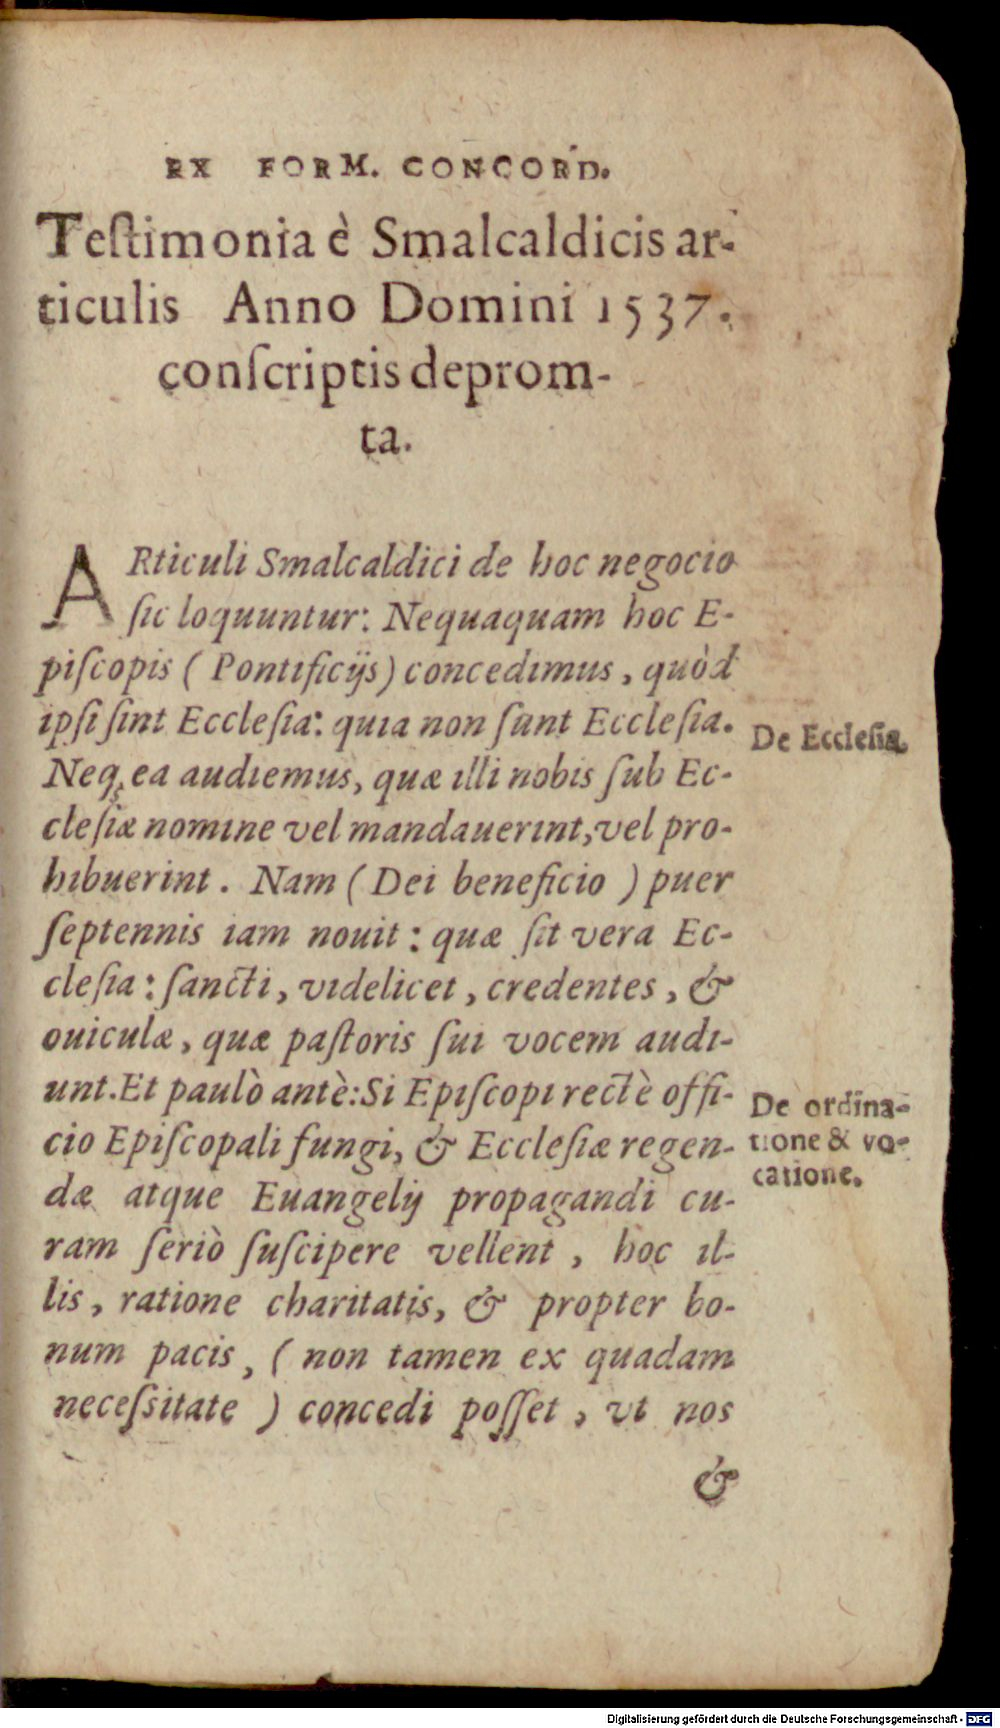 EX FORM. CONCORD.
Teſtimonia è Smalcaldicis ar-
ticulis Anno Domini 1537.
conſcriptis deprom-
ta.
ARticuli Smalcaldici de hoc negocio
ſic loquuntur: Nequaquam hoc E-
piſcopis ( Pontificijs) concedimus, quòd
ipſi ſint Eccleſia: quia non ſunt Eccleſia.
De Eccleſia.
Neq; ea audiemus, quæ illi nobis ſub Ec-
cleſiæ nomine vel mandauerint, vel pro-
hibuerint. Nam ( Dei beneficio ) puer
ſeptennis iam nouit: quæ ſit vera Ec-
cleſia: ſancti, videlicet, credentes, &
ouiculæ, quæ paſtoris ſui vocem audi-
unt. Et paulò antè: Si Epiſcopi rectè offi-
cio Epiſcopali fungi, & Eccleſiæ regen-
dæ atque Euangelij propagandi cu-
De ordina-
tione & vo-
catione.
ram ſeriò ſuſcipere vellent, hoc il-
lis, ratione charitatis, & propter bo-
num pacis, ( non tamen ex quadam
neceſsitate ) concedi poſſet, vt nos
&
Digitalisierung gefördert durch die Deutsche Forschungsgemeinschaft - DFG